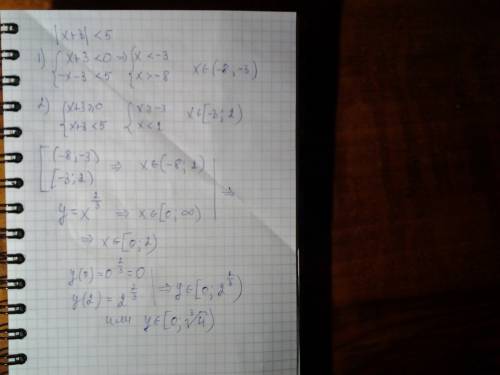 |x+3| < 5
1) { x+3 < 0 ⇒ { x < -3
{ -x-3 < 5 { x > -8 x ∈ (-8; -3)
2) { x+3 ≥ 0 { x ≥ -3
{ x+3 < 5 { x < 2 x ∈ [-3; 2)
[ (-8; -3) ⇒ x ∈ (-8; 2)
[ [-3; 2) ⇒
y = x^{2/3} ⇒ x ∈ [0; ∞)
⇒ x ∈ [0; 2)
y(0) = 0^{2/3} = 0
y(2) = 2^{2/3} ⇒ y ∈ [0; 2^{2/3})
или y ∈ [0; ∛4)